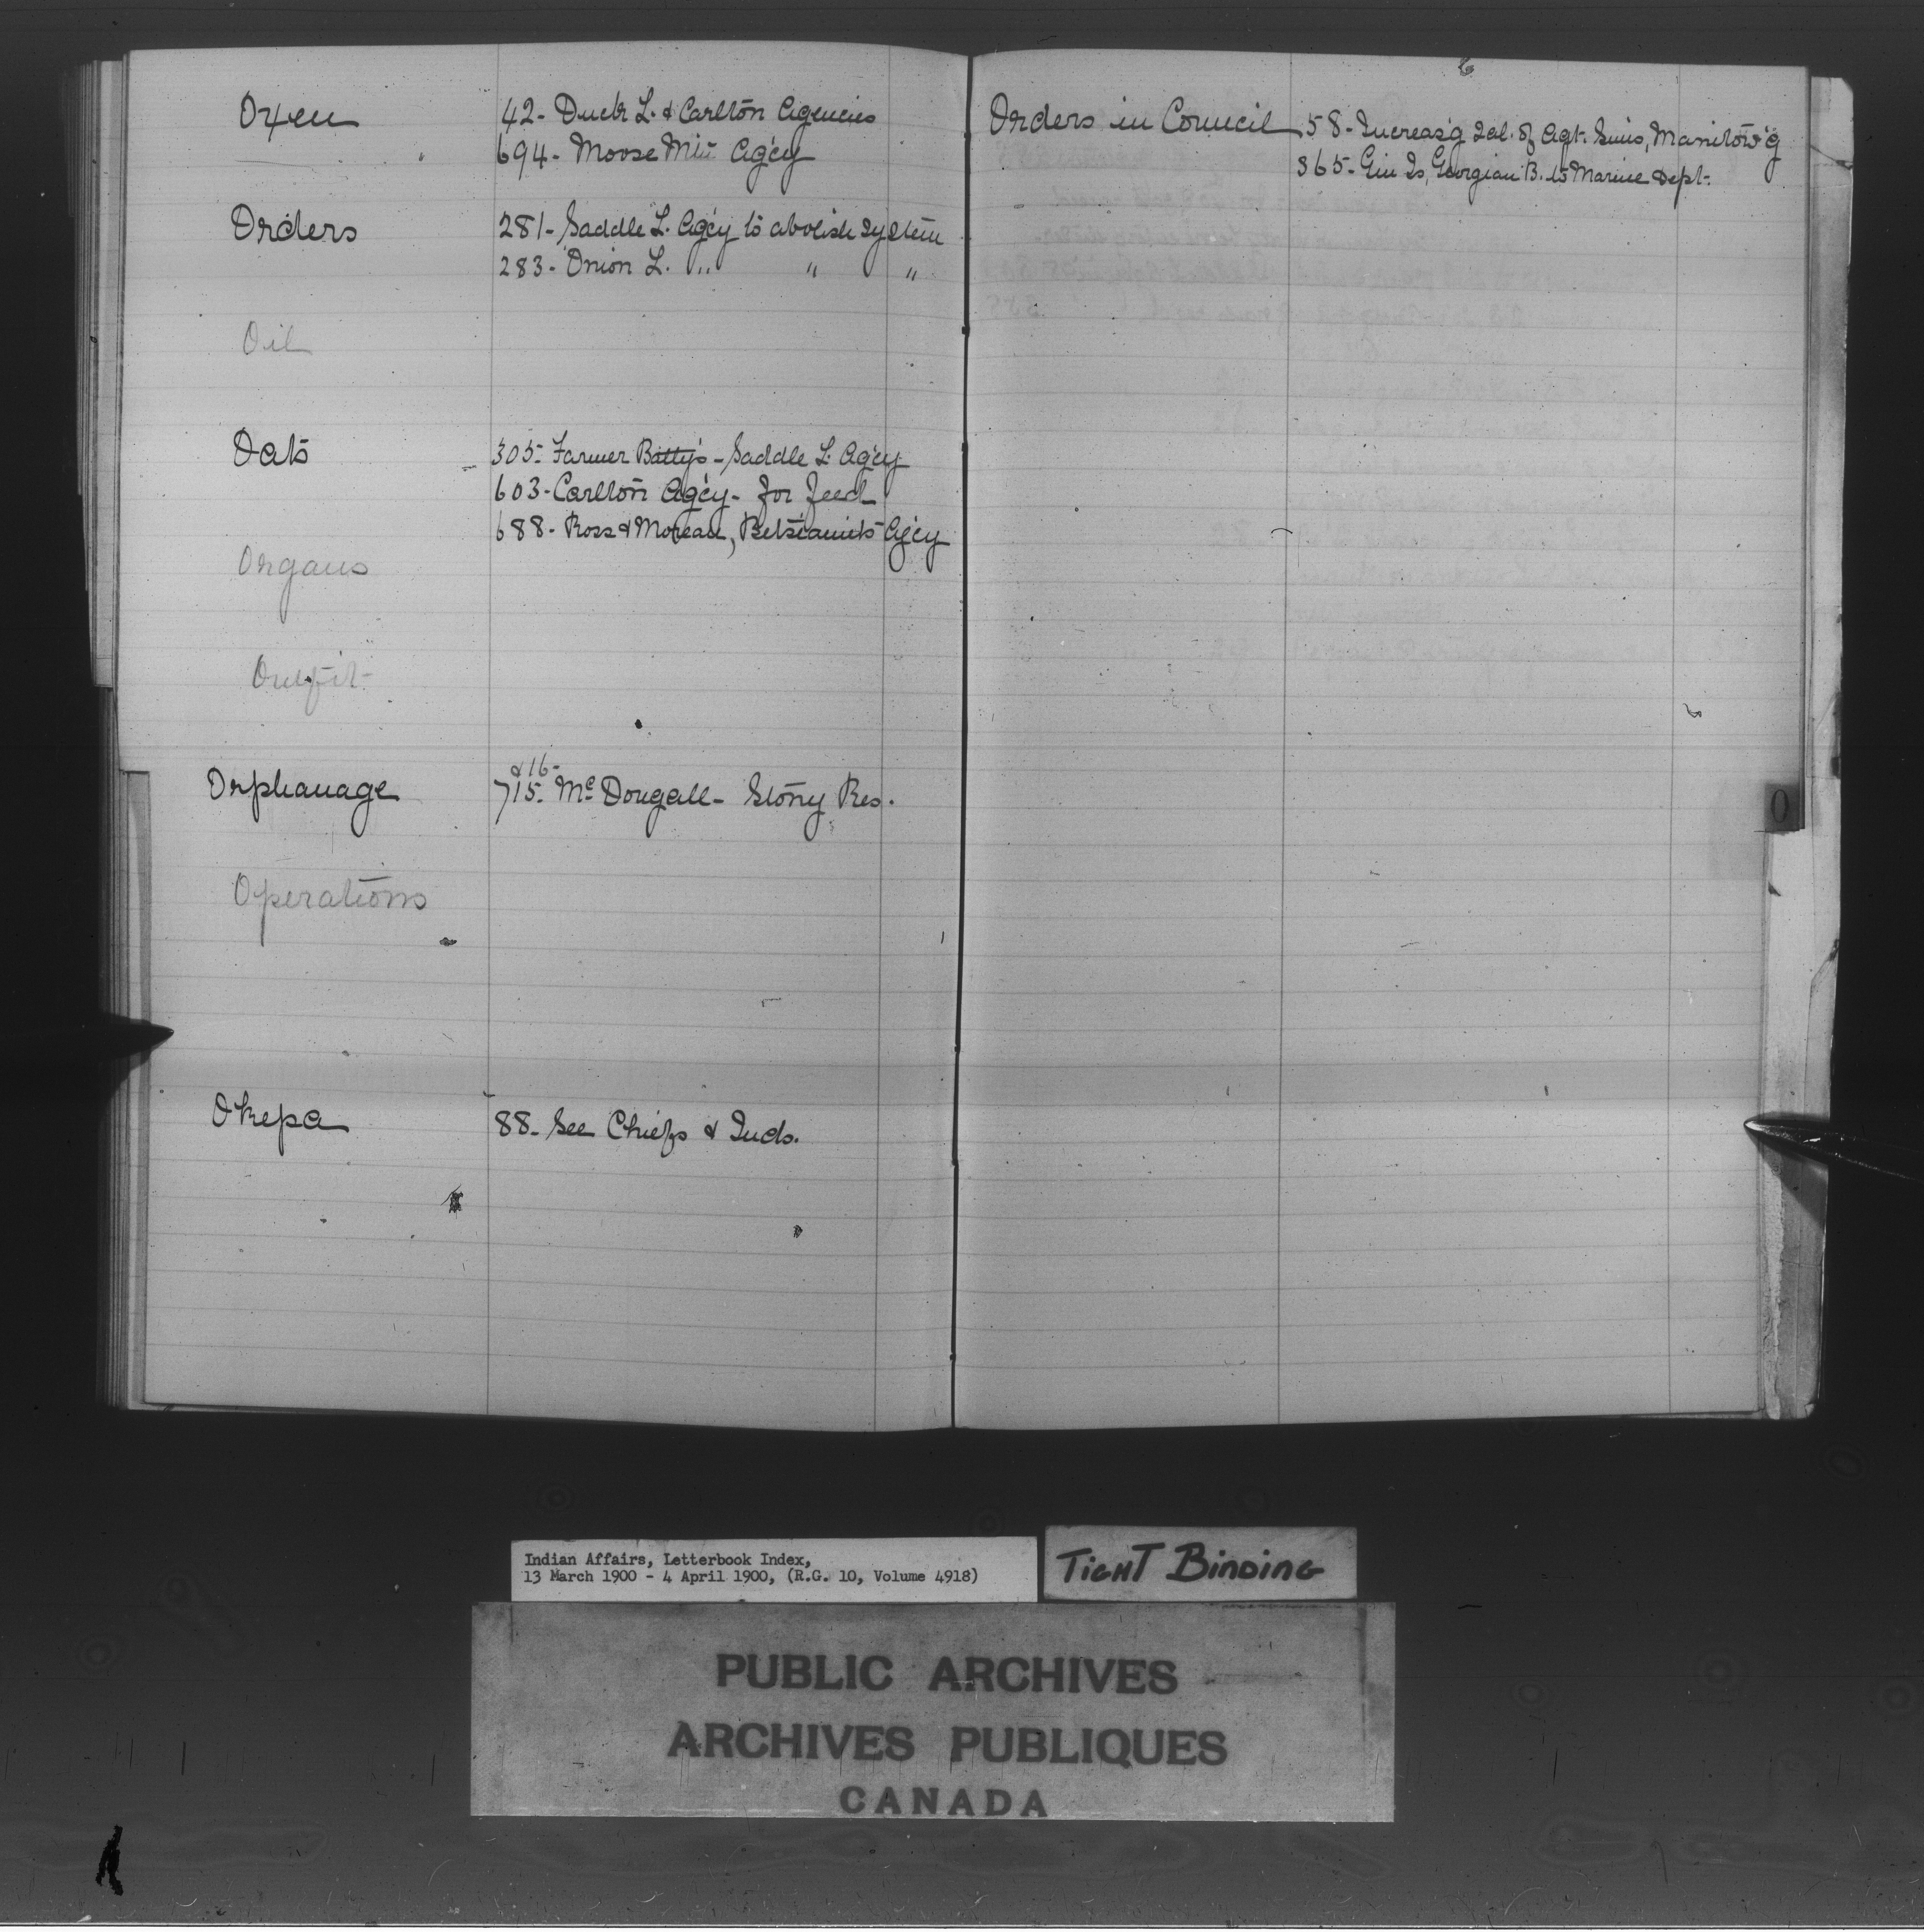 Oxen 42- Duck L. & Carlton Agencies
694- Moose Mtn Ag'cy
Orders 281- Saddle L. Ag'cy to abolish system
283- Onion L. " " "
Oil
Oats 305- Farmer Batty's - Saddle L. Ag'cy
603- Carlton Ag'cy - for feed
688- Ross & Moreau, Betsiamits Ag'cy
Organs
Outfit
& 16-
Orphanage 715- McDougall - Stony Res.
Operations
Okepa 88- See Chiefs & Inds.
Orders in Council 58- Increas'g Sal. of Agt. Sims, Manitow'g
365- Gin Is, Georgian B. to Marine Dept.
O
Indian Affairs, Letterbook Index,
13 March 1900 - 4 April 1900, (R.G. 10, Volume 4918)
TIGHT BINDING
PUBLIC ARCHIVES
ARCHIVES PUBLIQUES
CANADA